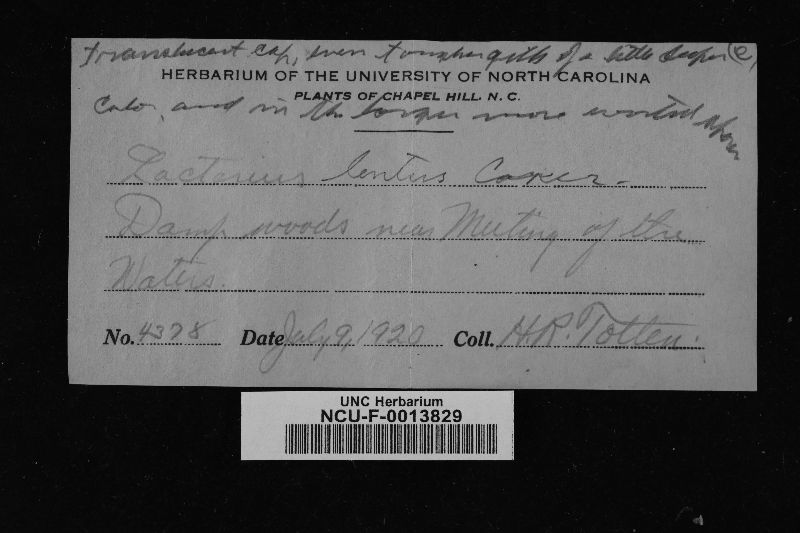 translucent cap, even tougher gills of a little deeper (e)
HERBARIUM OF THE UNIVERSITY OF NORTH CAROLINA
PLANTS OF CHAPEL HILL, N. C.
color, and in the larger more spores
Lactarius lentus Coker.
Damp woods near Meeting of the
Waters.
No. 4378 Date July 9, 1920 Coll. H.R. Totten.
UNC Herbarium
NCU-F-0013829